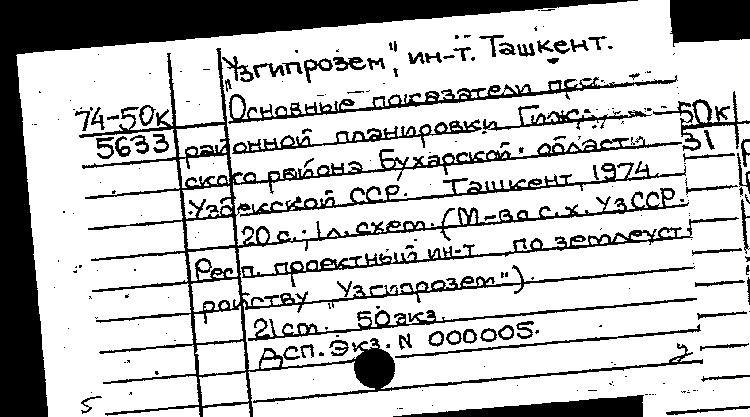 "Узгипрозем", ин-т. Ташкент.
74-50к
5633
Основные показатели
районной планировки
ского района Бухарской области
Узбекской ССР. Ташкент, 1974.
20 с.; 1 л. схем. (М-во с.х. УзССР.
Респ. проектный ин-т по землеуст-
ройству "Узгипрозем").
21 cm. 50 экз.
ДСП. Экз. N 000005.
2
5
50к
31